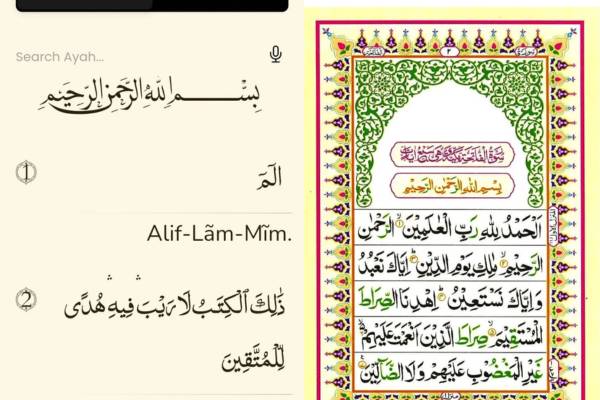 Search Ayah...
بِسْمِ اللهِ الرَّحْمٰنِ الرَّحِيْمِ
1
الٓمٓ
Alif-Lãm-Mĩm.
2
ذَٰلِكَ ٱلْكِتَٰبُ لَا رَيْبَ ۛ فِيهِ ۛ هُدًى
لِّلْمُتَّقِينَ
٢
سُوْرَةُ الْفَاتِحَةِ مَكِّيَّةٌ وَّهِيَ سَبْعُ اٰيَاتٍ
بِسْمِ اللهِ الرَّحْمٰنِ الرَّحِيْمِ
اَلْحَمْدُ لِلّٰهِ رَبِّ الْعٰلَمِيْنَ ۙ۱ الرَّحْمٰنِ
الرَّحِيْمِ ۙ۲ مٰلِكِ يَوْمِ الدِّيْنِ ۳ اِيَّاكَ نَعْبُدُ
وَاِيَّاكَ نَسْتَعِيْنُ ۴ اِهْدِنَا الصِّرَاطَ
الْمُسْتَقِيْمَ ۙ۵ صِرَاطَ الَّذِيْنَ اَنْعَمْتَ عَلَيْهِمْ ۶
غَيْرِ الْمَغْضُوْبِ عَلَيْهِمْ وَلَا الضَّآلِّيْنَ ۷